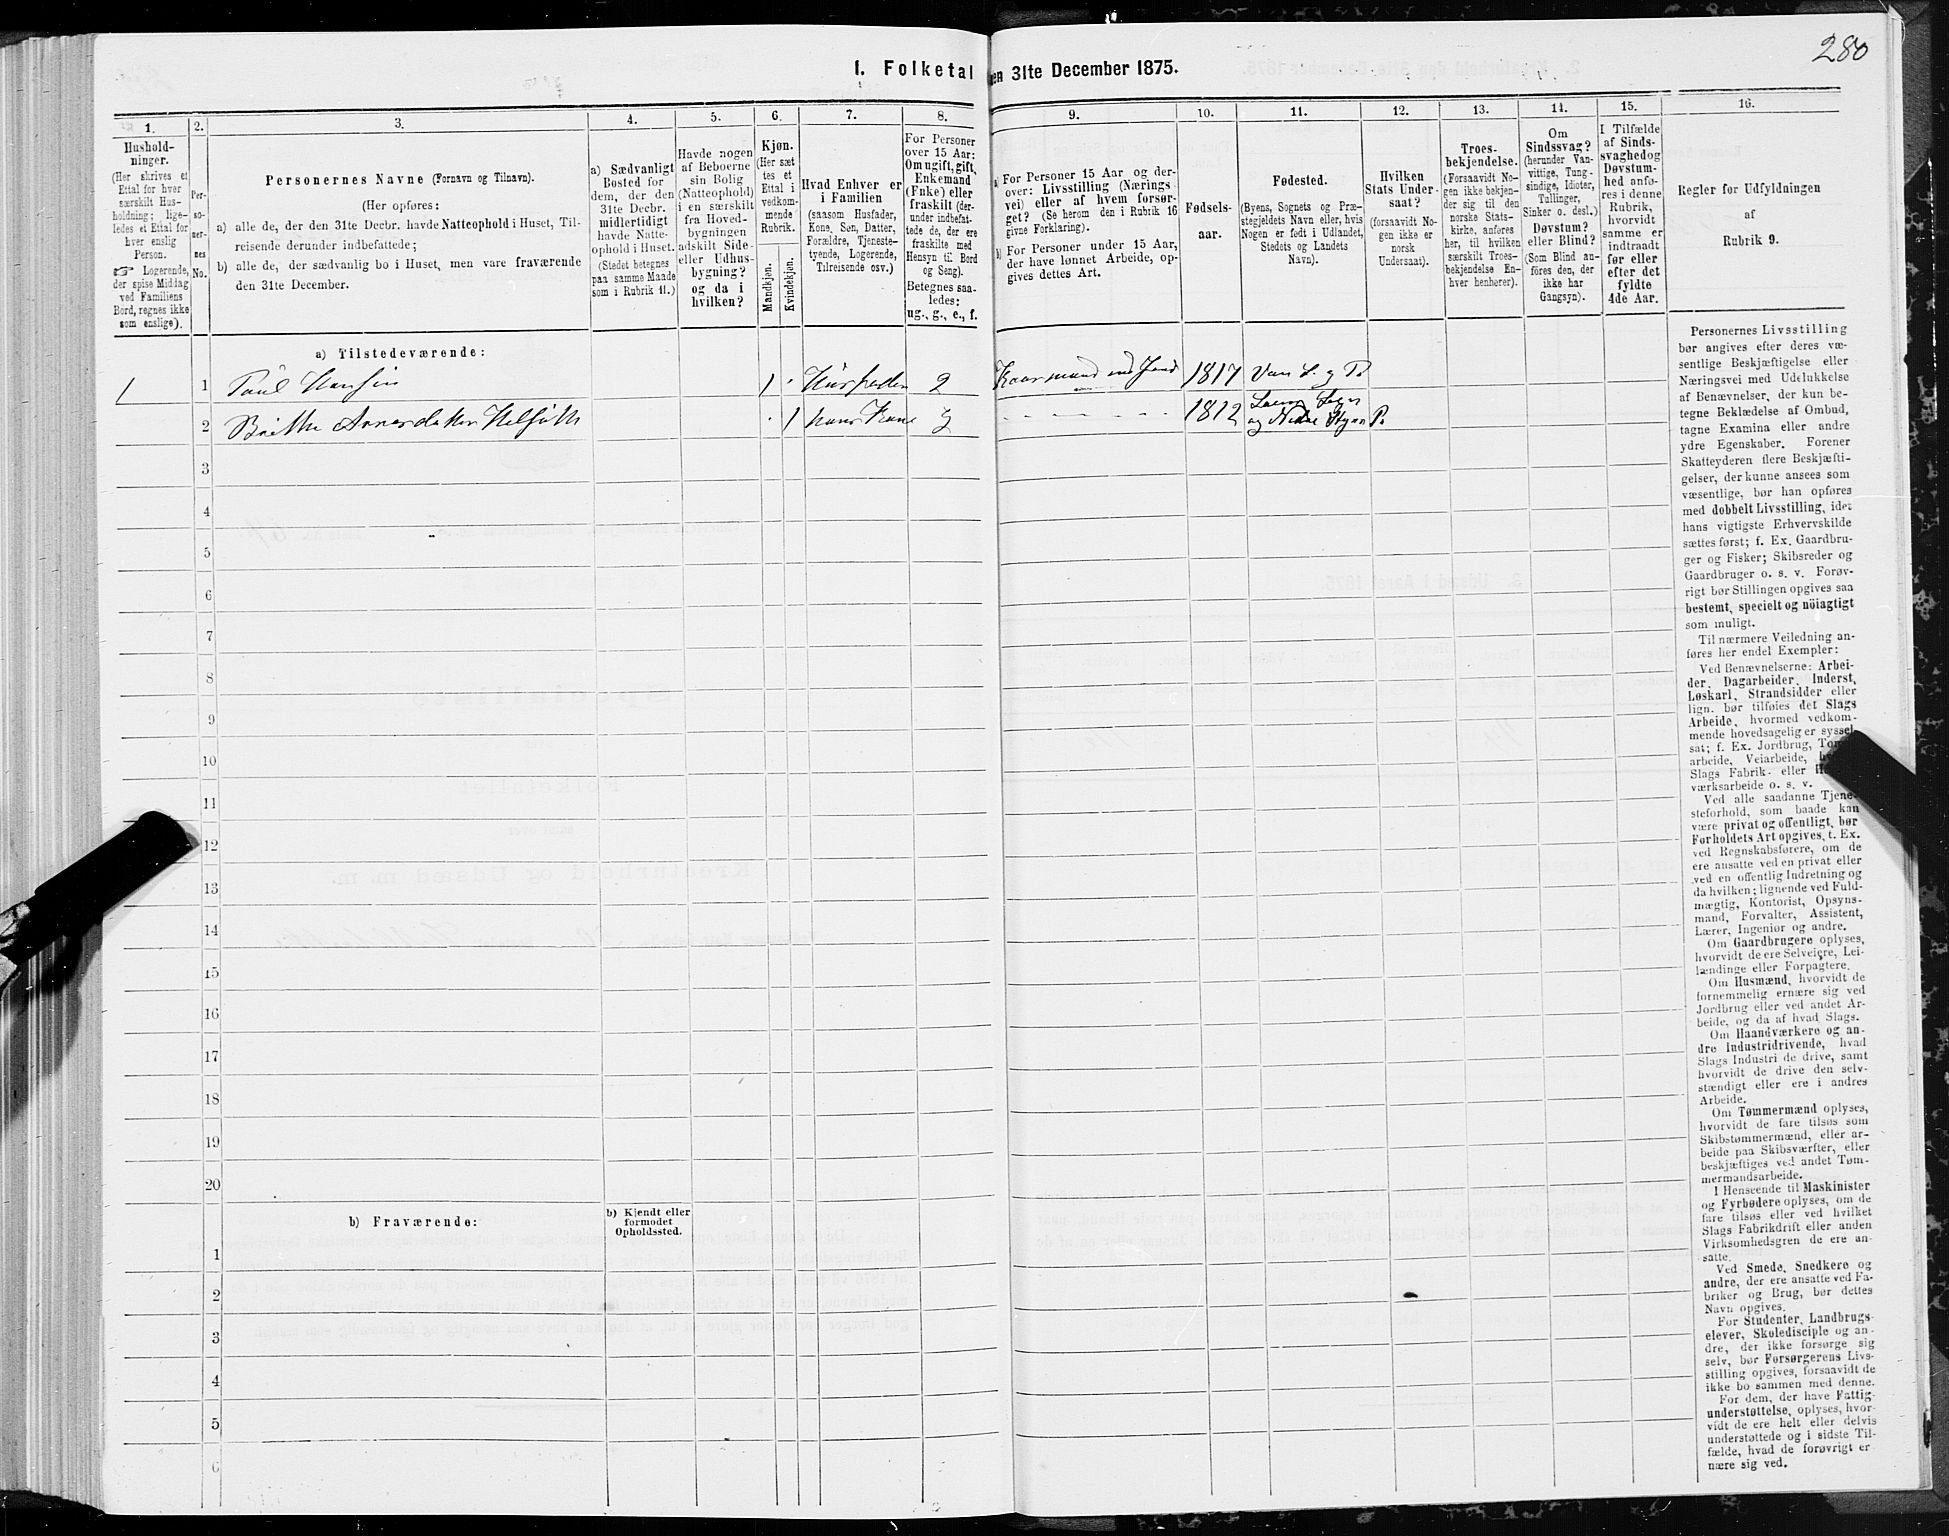 280
1. Folketal den 31te December 1875.
1. 2. 3. 4. 5. 6. 7. 8. 9. 10. 11. 12. 13. 14. 15. 16.
Hushold-
ninger.
(Her skrives et
Ettal for hver
særskilt Hus-
holdning; lige-
ledes et Ettal for
hver enslig
Person.
☞ Logerende,
der spise Middag
ved Familiens
Bord, regnes ikke
som enslige).
Per-
so-
ner-
nes
No.
Personernes Navne (Fornavn og Tilnavn).
(Her opføres:
a) alle de, der den 31te Decbr. havde Natteophold i Huset, Til-
reisende derunder indbefattede;
b) alle de, der sædvanlig bo i Huset, men vare fraværende
den 31te December.
a) Sædvanligt
Bosted for
dem, der den
31te Decbr.
midlertidigt
havde Natte-
ophold i Huset.
(Stedet betegnes
paa samme Maade
som i Rubrik 11.)
Havde nogen
af Beboerne
sin Bolig
(Natteophold)
i en særskilt
fra Hoved-
bygningen
adskilt Side-
eller Udhus-
bygning?
og da i
hvilken?
Kjøn.
(Her sæt-
tes et
Ettal i
vedkom-
mende
Rubrik.
Mandkjøn.
Kvindekjøn.
Hvad Enhver er
i Familien
(saasom Husfader,
Kone, Søn, Datter,
Forældre, Tjeneste-
tyende, Logerende,
Tilreisende osv.)
For Personer
over 15 Aar:
Om ugift, gift,
Enkemand
(Enke) eller
fraskilt (der-
under indbefat-
tede de, der ere
fraskilte med
Hensyn til Bord
og Seng).
Betegnes saa-
ledes:
ug., g., e., f.
a) For Personer 15 Aar og der-
over: Livsstilling (Nærings-
vei) eller af hvem forsør-
get? (Se herom den i Rubrik 16
givne Forklaring).
b) For Personer under 15 Aar,
der have lønnet Arbeide, op-
gives dettes Art.
Fødsels-
aar.
Fødested.
(Byens, Sognets og Præ-
stegjeldets Navn eller, hvis
Nogen er født i Udlandet,
Stedets og Landets
Navn).
Hvilken
Stats Under-
saat?
(forsaavidt No-
gen ikke er
norsk
Undersaat).
Troes-
bekjendelse.
(Forsaavidt No-
gen ikke bekjen-
der sig til den
norske Stats-
kirke, anføres
her, til hvilken
særskilt Troes-
bekjendelse En-
hver henhører).
Om
Sindssvag?
(herunder Van-
vittige, Tung-
sindige, Idioter,
Tullinger,
Sinker o. desl.)
Døvstum?
eller Blind?
(Som Blind an-
føres den, der
ikke har
Gangsyn).
I Tilfælde
af Sinds-
svaghed og
Døvstum-
hed anfø-
res i denne
Rubrik,
hvorvidt
samme er
indtraadt
før eller
efter det
fyldte
4de Aar.
Regler for Udfyldningen
af
Rubrik 9.
a) Tilstedeværende:
1 1 Paul Hansen 1 Husfader g 1817
2 1 hans Kone g 1812
3
4
5
6
7
8
9
10
11
12
13
14
15
16
17
18
19
20
b) Fraværende:
b) Kjendt eller
formodet
Opholdssted.
1
2
3
4
5
6
Personernes Livsstilling
bør angives efter deres væ-
sentlige Beskjæftigelse eller
Næringsvei med Udelukkelse
af Benævnelser, der kun be-
tegne Beklædelse af Ombud,
tagne Examina eller andre
ydre Egenskaber. Forener
Skatteyderen flere Beskjæfti-
gelser, der kunne ansees som
væsentlige, bør han opføres
med dobbelt Livsstilling, idet
hans vigtigste Erhvervskilde
sættes først; f. Ex. Gaardbru-
ger og Fisker; Skibsreder og
Gaardbruger o. s. v. Forøv-
rigt bør Stillingen opgives saa
bestemt, specielt og nöiagtigt
som muligt.
Til nærmere Veiledning an-
føres her endel Exempler:
Ved Benævnelserne: Arbei-
der, Dagarbeider, Inderst,
Løskarl, Strandsidder eller
lign. bør tilføies det Slags
Arbeide, hvormed vedkom-
mende hovedsagelig er syssel-
sat; f. Ex. Jordbrug,
arbeide, Veiarbeide,
Slags Fabrik- eller
værksarbeide o. s. v.
Ved alle saadanne Tjene-
steforhold, som baade kan
være privat og offentligt, bør
Forholdets Art opgives, t. Ex.
ved Regnskabsførere, om de
ere ansatte ved en privat eller
ved en offentlig Indretning og
da hvilken; lignende ved Fuld-
mægtig, Kontorist, Opsyns-
mand, Forvalter, Assistent,
Lærer, Ingeniør og andre.
Om Gaardbrugere oplyses,
hvorvidt de ere Selveiere, Lei-
lændinge eller Forpagtere.
Om Husmænd, hvorvidt de
fornemmelig ernære sig ved
Jordbrug eller ved andet Ar-
beide, og da af hvad Slags.
Om Haandværkere og an-
dre Industridrivende, hvad
Slags Industri de drive, samt
hvorvidt de drive den selv-
stændigt eller ere i andres
Arbeide.
Om Tømmermænd oplyses,
hvorvidt de fare tilsøs som
Skibstømmermænd, eller ar-
beide paa Skibsværfter, eller
beskjæftiges ved andet Tøm-
mermandsarbeide.
I Henseende til Maskinister
og Fyrbødere oplyses, om de
fare tilsøs eller ved hvilket
Slags Fabrikdrift eller anden
Virksomhedsgren de ere an-
satte.
Ved Smede, Snedkere og
andre, der ere ansatte ved Fa-
briker og Brug, bør dettes
Navn opgives.
For Studenter, Landbrugs-
elever, Skoledisciple og an-
dre, der ikke forsørge sig
selv, bør Forsørgerens Livs-
stilling opgives, forsaavidt de
ikke bo sammen med denne.
For dem, der have Fattig-
understøttelse, oplyses, hvor-
vidt de ere helt eller delvis
understøttede og i sidste Til-
fælde, hvad de forøvrigt er-
nære sig ved.